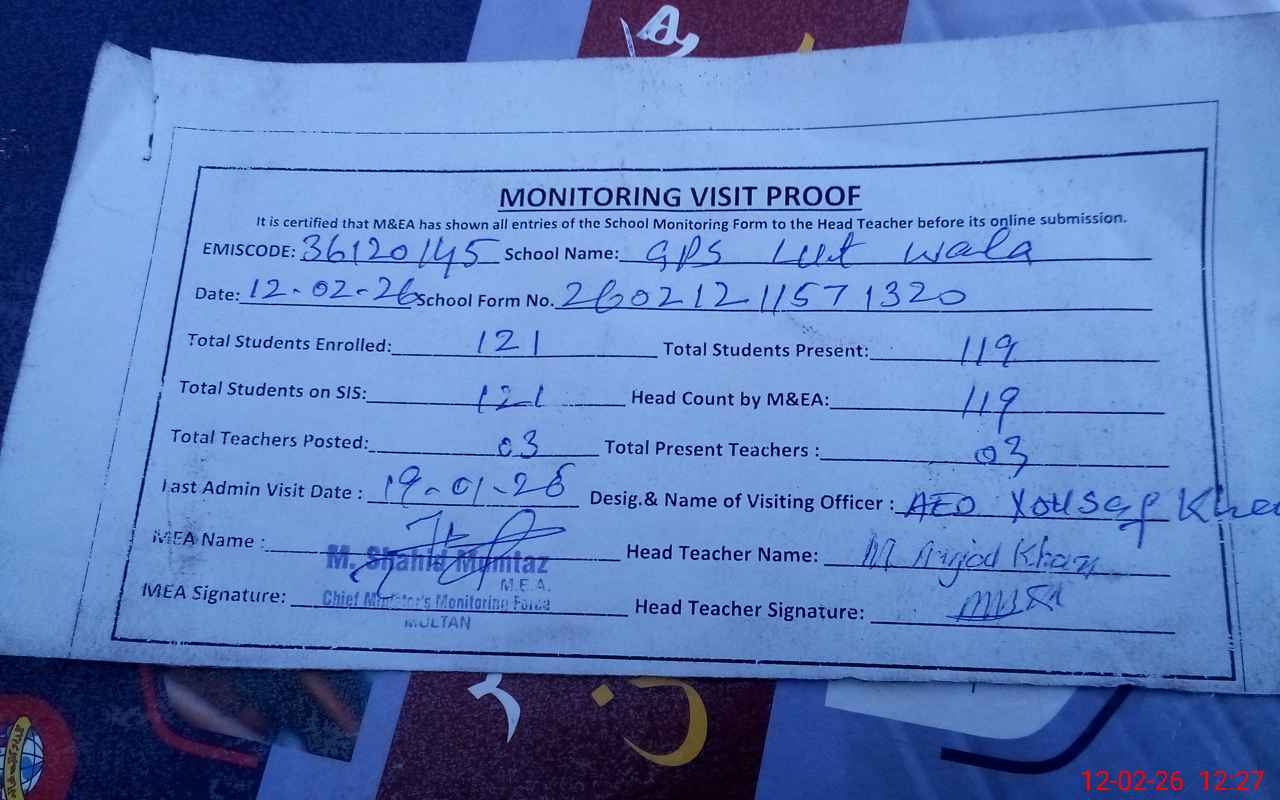 MONITORING VISIT PROOF
It is certified that M&EA has shown all entries of the School Monitoring Form to the Head Teacher before its online submission.
EMISCODE: 36120145 School Name: GPS Lut Wala
Date: 12-02-26 School Form No. 26021211571320
Total Students Enrolled: 121 Total Students Present: 119
Total Students on SIS: 121 Head Count by M&EA: 119
Total Teachers Posted: 03 Total Present Teachers : 03
Last Admin Visit Date : 19-01-26 Desig.& Name of Visiting Officer : AEO Yousaf Kha
MEA Name : Head Teacher Name: M Amjad Khan
M. Shahid Mumtaz
M.E.A.
MEA Signature: Head Teacher Signature:
Chief Minister's Monitoring Force
MULTAN
12-02-26 12:27